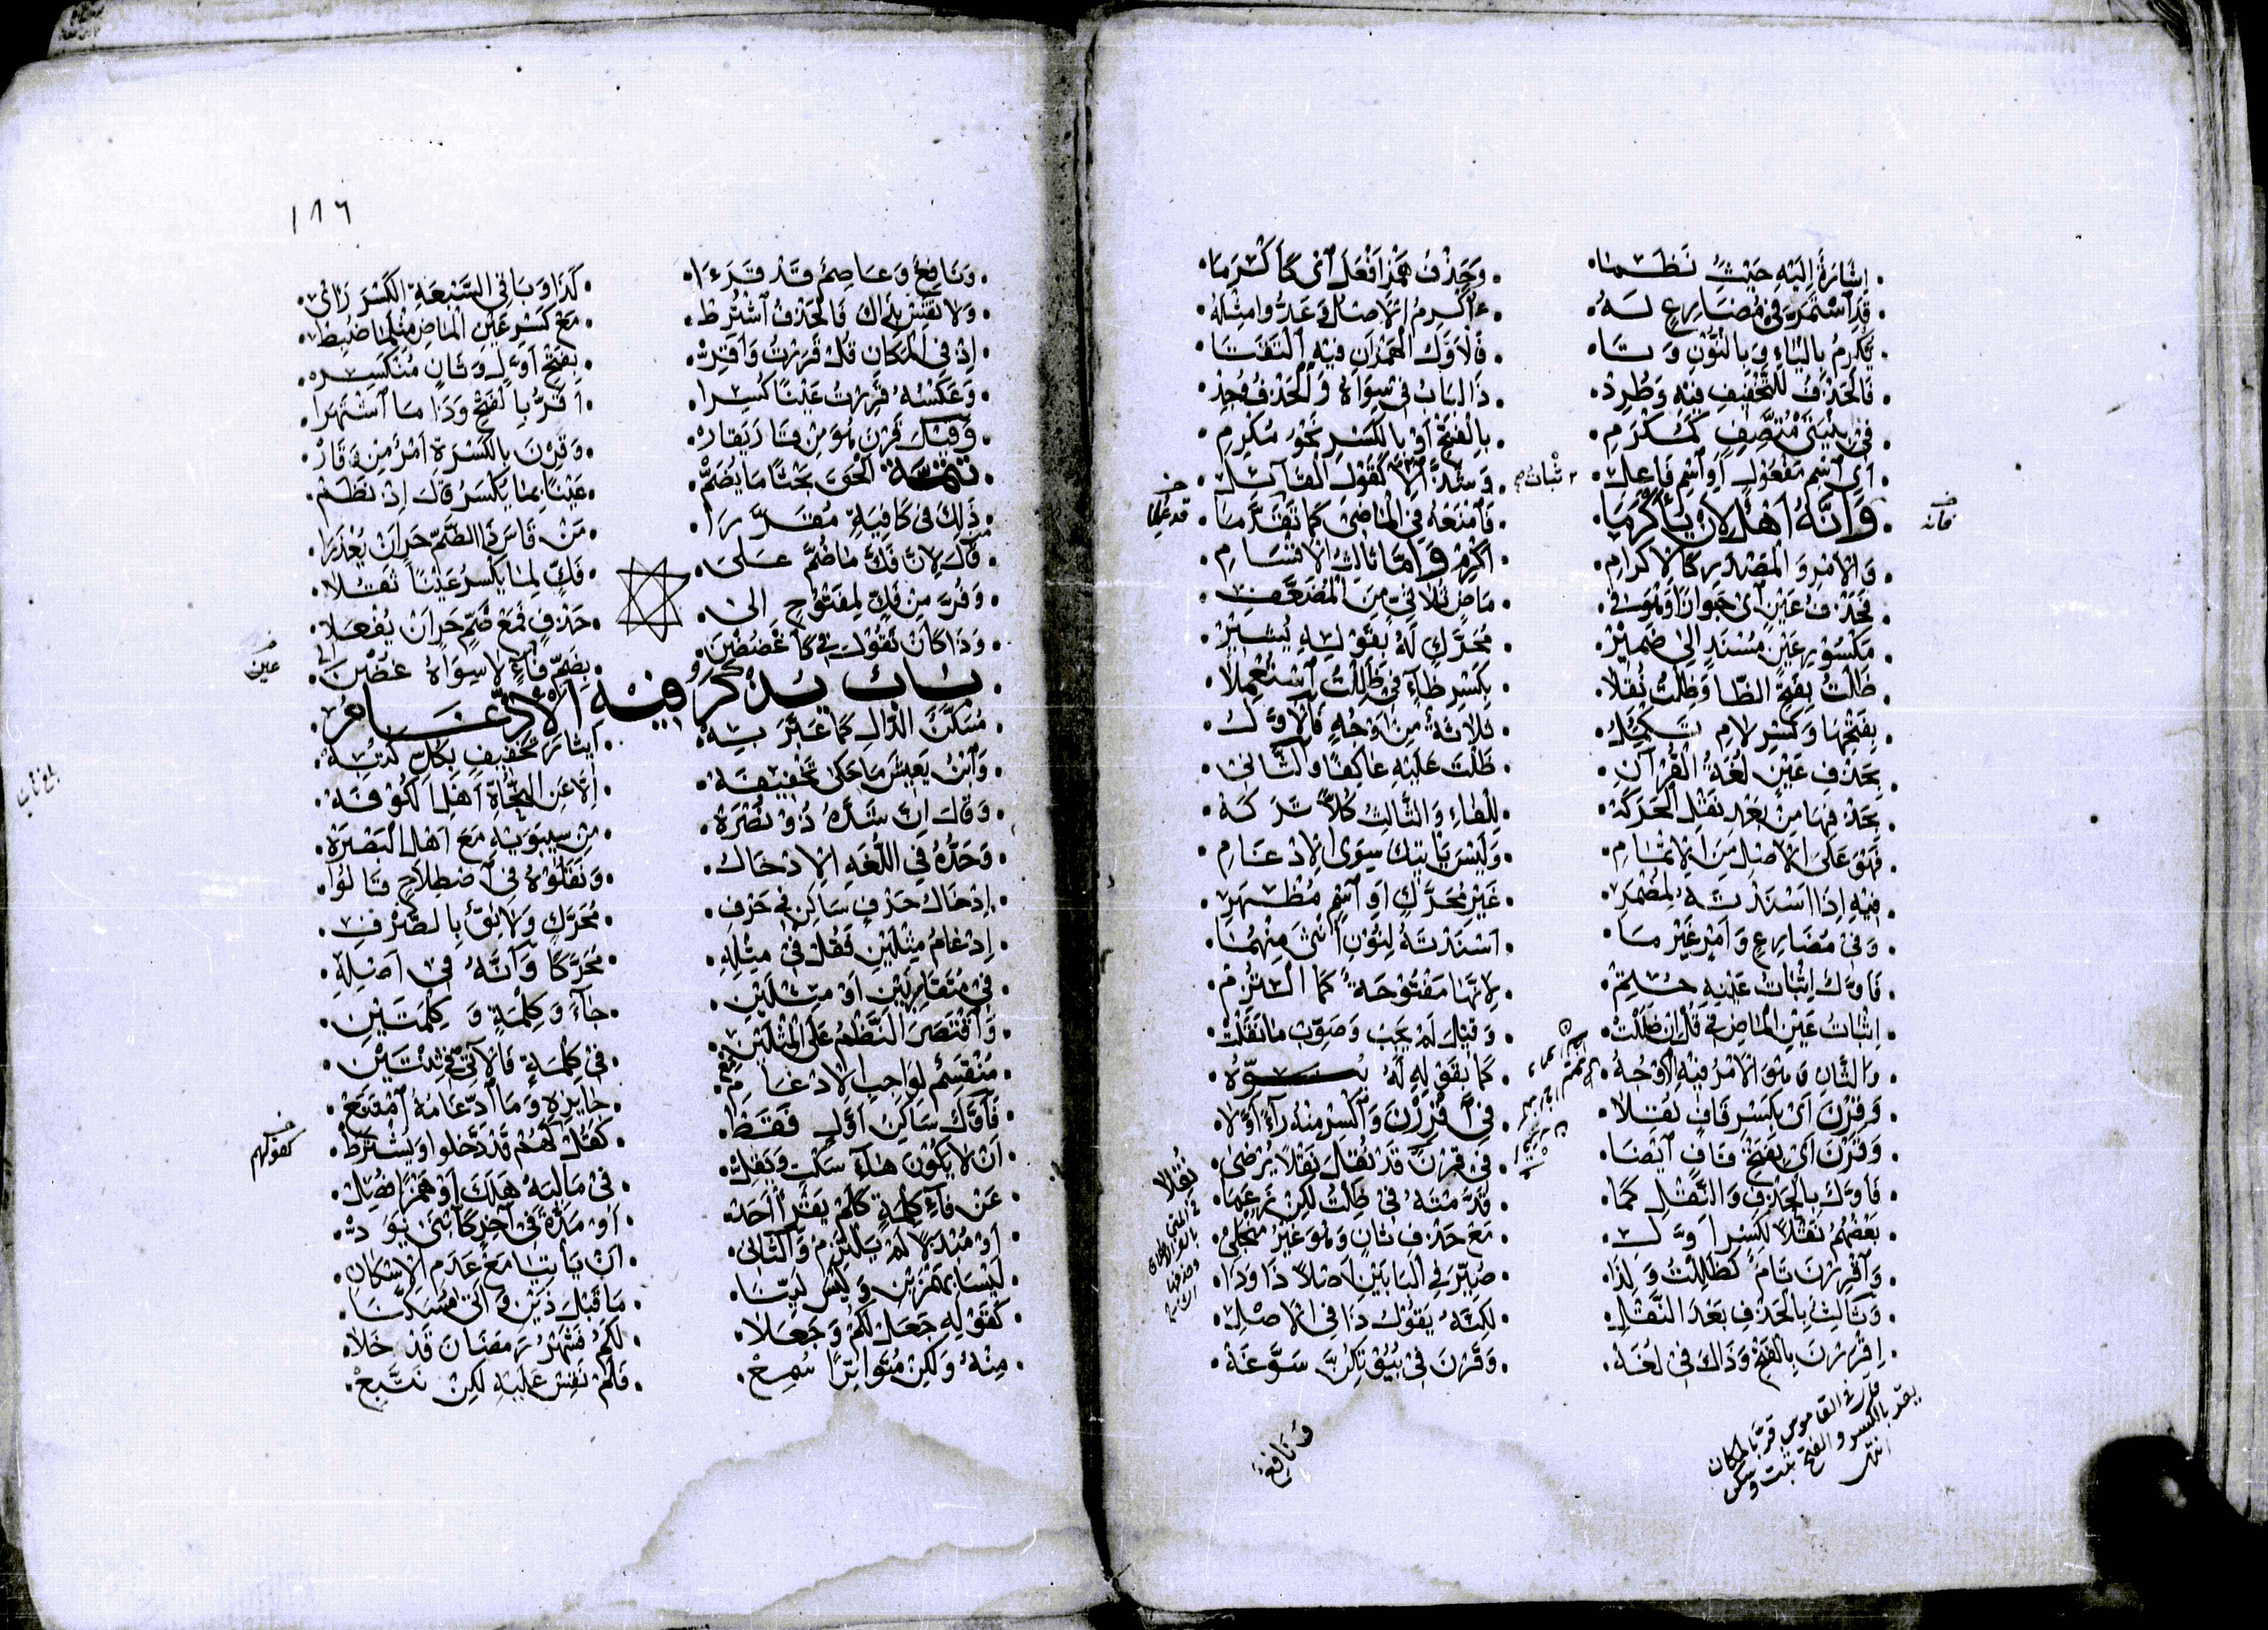 إشارة إليه حيث نظما وحذف همز أفعل أتى كأكرما
قد استمر في مضارع له ءأكرم الأصل وعدوا مثله
يكرم بالياء وبالنون وتا فالأول الهمزان فيه التقتا
فالحذف للتخفيف فيه وطرد ذا الباب في سواه والحذف وجد
في بنيتي متصف كمكرم بالفتح أو بالكسر نحو مكرم
أي اسم مفعول أو اسم فاعل وشذ إلا كقول القائل
وأنه أهل لأن يأكرما فامنعه في الماضي كما تقدما
والأمر والمصدر كالإكرام أكرم وأما ثالث الأقسام
فحذف عين أي جوازا وهو في ماض ثلاثي من المضعف
مكسور عين مسند إلى ضمير محرك له بقوله يشير
ظلت بفتح الظا وظلت نقلا بكسر ظاء في ظللت استعملا
بفتحها وكسر لام تكميل ثلاثة من أوجه فالأول
بحذف عين لغة القرآن ظلت عليه عاكفا والثاني
بحذفها من بعد نقل الحركه للفاء والثالث كلا تركه
فهو على الأصل من الإتمام وليس يأتيك سوى الإدغام
فيه إذا أسندته لمضمر غير محرك أو اسم مظهر
وفي مضارع وأمر غير ما أسندته لنون أنثى منهما
فأول إثبات عينه حتم لأنها مفتوحة كما التزم
إثبات عين الماض في قل إن ظللت وقيل لم يجب وصوب ما نقلت
والثان وهو الأمر فيه الأوجه كما بقوله له ينوه
وقرن أي بكسر قاف نقلا في اقررن واكسر منه راء أولا
وقرن أي بفتح قاف أيضا في قرن قد نقل نقلا يرضى
فأول بالحذف والنقل كما قدمته في ظلت لكن زعما
بعضهم نقلا لكسر أول مع حذف ثان وهو غير منجلي
واقررن تام كظللت ولذا صير في البابين أصلا ذا وذا
وثالث بالحذف بعد النقل لكنه يقول ذا في الأصل
اقررن بالفتح وذاك في لغه وقرن في بيوتكن سوغه
فإنه
قد علما
نقلا
قال في القاموس قر بالمكان
يقر بالكسر والفتح ثبت وسكن
انتهى
ونافع
١٨٦
ونافع وعاصم قد قرءا كذا وباقي السبعة الكسر رأى
ولا تقس بذاك فالحذف اشترط مع كسر عين الماض مثلما ضبط
إذ في المكان قل قررت وأقر بفتح أول وثان منكسر
وعكسه قررت عينا كسرا أقر بالفتح وذا ما اشتهرا
وقيل قرن هو من قار يقار وقرن بالكسرة أمر من وقار
تتمة ألحق بحثا ما يضم عينا بما يكسر قال إذ نظم
ذلك في كافية مقررا من قاس ذا الضم حر أن يعذرا
قال لأن فك ما ضم على فك لما يكسر عينا نقلا
وفر من فك لمفتوح إلى حذف فمع ضم حر أن يفعلا
وذا كأن تقول في كاغضضن بضم فاء لا سواه غضن
عين
باب يذكر فيه الإدغام
مسكن الدال كما عبر به إيثار تخفيف بكل كتبه
وابن يعيش ما حكى تخفيفه إلا عن النحاة أهل الكوفه
وقال إن شده ذو نصره من سيبويه مع أهل البصره
وحده في اللغة الإدخال ونقلوه في اصطلاح قالوا
إدخال حرف ساكن في حرف محرك ولائق بالصرف
إدغام مثلين فقل في مثله محركا وأنه في أصله
في متقاربين أو مثلين جاء وكلمة وكلمتين
واقتصر النظم على المثلين في كلمة فالآتي في ثنتين
منقسم لواجب الإدغام جايزه وما ادغامه امتنع
فأول ساكن أول فقط كقل لهم قد دخلوا ويشترط
أن لا يكون هاء سكت ونقل في ماليه هلك أو همزا فصل
عن فاء كلمة كلم يقرأ أحد أو مدة في آخر كأتى يؤد
أو مبدلا لم يلتزم والثاني أن يأتيا مع عدم الإسكان
ليسا بهمزين وليس لينا ما قبل ذين وأتى مسكنا
كقوله جعل لكم وجعلا لكم فشهر رمضان قد خلا
منه ولكن متواترا سمع فلم نقس عليه لكن نتبع
كقولهم